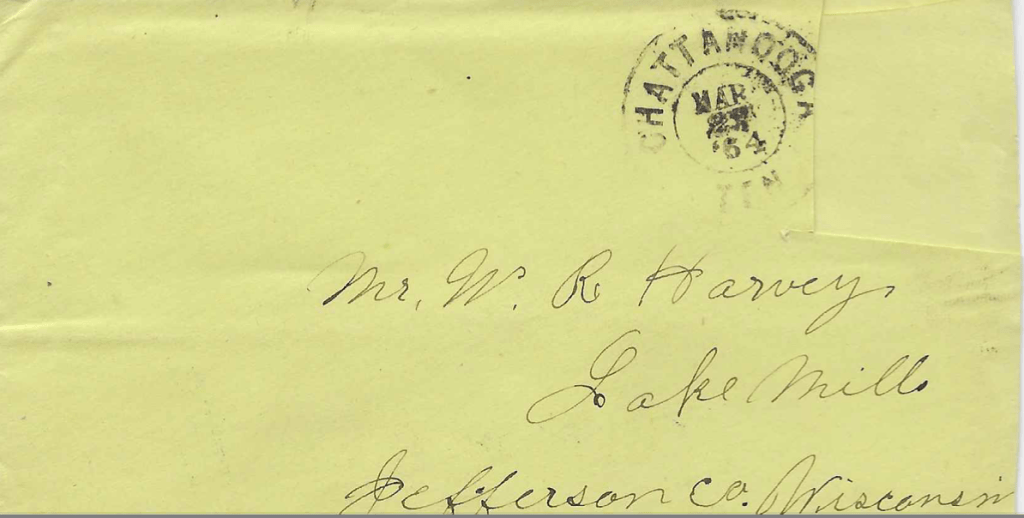 CHATTANOOGA
MAR
'64
TEN
Mr. W. R Harvey,
Lake Mills
Jefferson Co. Wisconsin